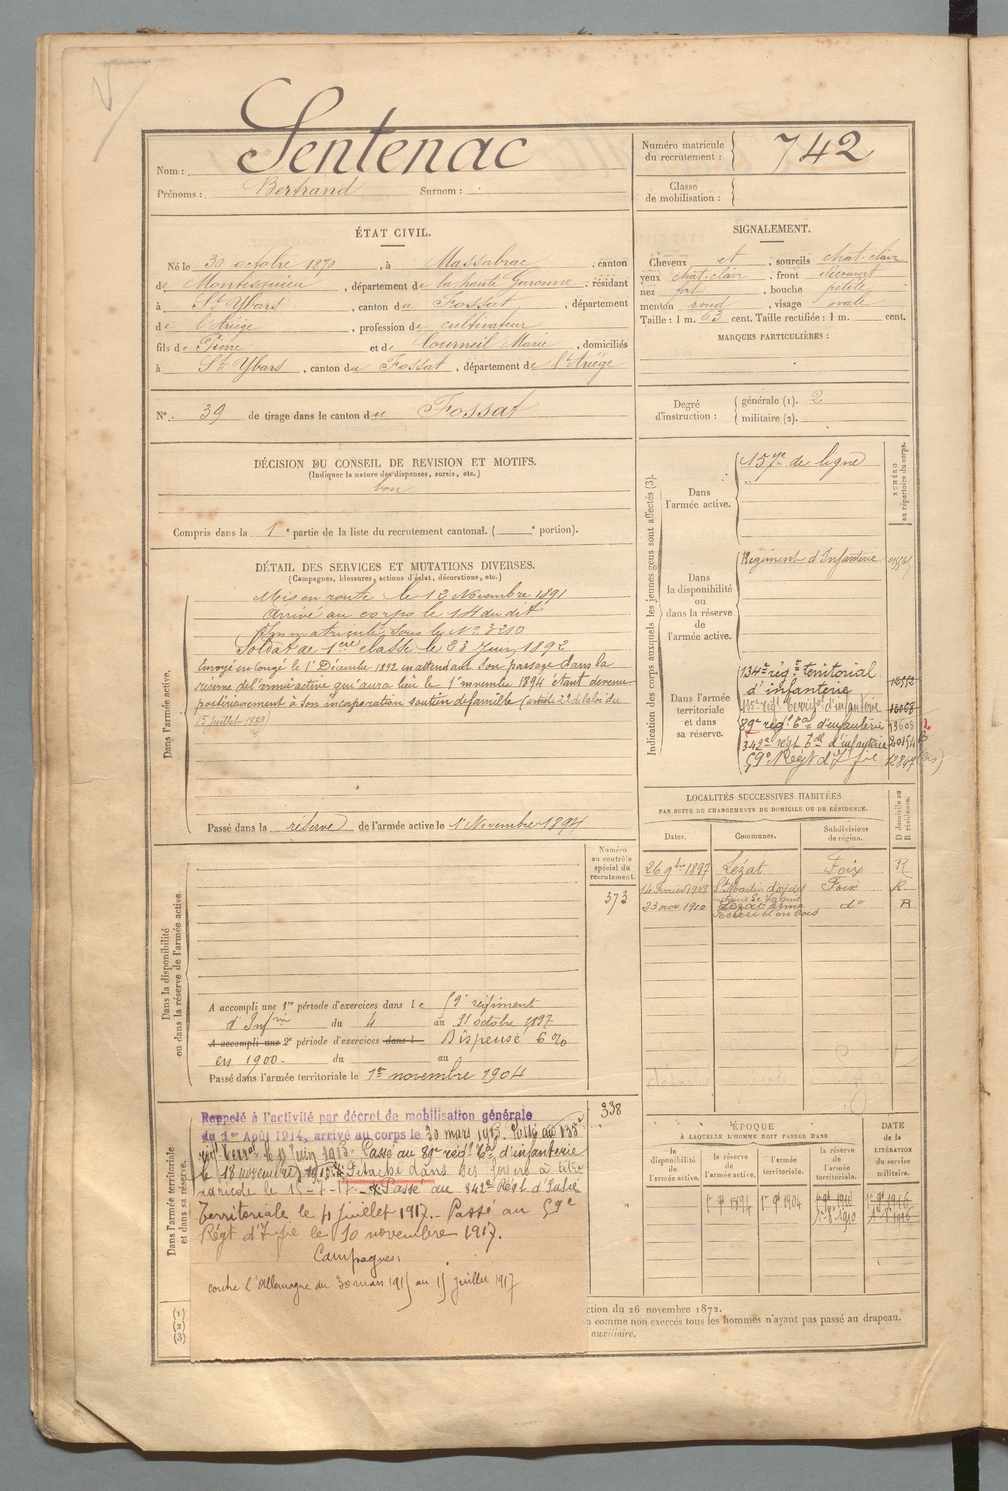 Nom : Sentenac
Prénoms : Bertrand Surnom :
Numéro matricule du recrutement : 742
Classe de mobilisation :
ÉTAT CIVIL.
Né le 30 octobre 1870, à Massabrac, canton
de Montesquieu, département de la haute Garonne, résidant
à St Ybars, canton du Fossat, département
de l'Ariège, profession de cultivateur
fils de Pierre et de Courneil Marie, domiciliés
à St Ybars, canton du Fossat, département de l'Ariège
N° 39 de tirage dans le canton du Fossat
SIGNALEMENT.
Cheveux et, sourcils chat-clair
yeux chat-clair, front découvert
nez fort, bouche petite
menton rond, visage ovale
Taille : 1 m. 63 cent. Taille rectifiée : 1 m. cent.
MARQUES PARTICULIÈRES :
Degré d'instruction : générale (1). 2
militaire (2).
DÉCISION DU CONSEIL DE REVISION ET MOTIFS.
(Indiquer la nature des dispenses, sursis, etc.)
bon
Compris dans la 1e partie de la liste du recrutement cantonal. ( e portion).
DÉTAIL DES SERVICES ET MUTATIONS DIVERSES.
(Campagnes, blessures, actions d'éclat, décorations, etc.)
Dans l'armée active.
Mis en route le 13 Novembre 1891
Arrivé au corps le 14 du dit
Immatriculé sous le No 3210
Soldat de 1ere classe le 23 Juin 1892
Envoyé en congé le 1er Décembre 1892 en attendant son passage dans la
reserve de l'armée active qui aura lieu le 1er novembre 1894 étant devenu
postérieurement à son incorporation soutien de famille (article 22 de la loi du
15 juillet 1889)
Passé dans la réserve de l'armée active le 1er Novembre 1894
Indication des corps auxquels les jeunes gens sont affectés (3).
NUMÉRO au répertoire du corps.
Dans l'armée active.
157e de ligne
Dans la disponibilité ou dans la réserve de l'armée active.
Régiment d'Infanterie
Dans l'armée territoriale et dans sa réserve.
134e rég.t territorial
d'infanterie
135e rég.t territ.l d'infanterie
89e rég.t t.al d'infanterie 13608
342e régt t.al d'infanterie 20154
59e Régt d'Inf.ie
LOCALITÉS SUCCESSIVES HABITÉES
PAR SUITE DE CHANGEMENTS DE DOMICILE OU DE RÉSIDENCE.
Dates. Communes. Subdivisions de région. D domicile ou R résidence.
26 9bre 1897 Lézat Foix R
14 février 1908 St Martin d'oydes Foix R
23 nov. 1910 Lézat do R
Dans la disponibilité ou dans la réserve de l'armée active.
Numéro au contrôle spécial du recrutement.
373
A accompli une 1re période d'exercices dans le 59e régiment
d'Infrie du 4 au 31 octobre 1897
A accompli une 2e période d'exercices dans l Dispensé 6 %
en 1900. du au
Passé dans l'armée territoriale le 1er novembre 1904
Dans l'armée territoriale et dans sa réserve.
338
Rappelé à l'activité par décret de mobilisation générale
du 1er Août 1914, arrivé au corps le 30 mars 1915. Passé au 135e
régt Terral le 11 juin 1915. Passé au 89e régt tal d'infanterie
le 18 novembre 1915. Détaché dans ses foyers à titre
agricole le 15-7-17. Passé au 342e Régt d'Infie
Territoriale le 11 juillet 1917. Passé au 59e
Régt d'Infie le 10 novembre 1917.
Campagnes
contre l'Allemagne du 30 mars 1915 au 15 juillet 1917
ÉPOQUE
À LAQUELLE L'HOMME DOIT PASSER DANS
la disponibilité de l'armée active. la réserve de l'armée active. l'armée territoriale. la réserve de l'armée territoriale.
DATE de la LIBÉRATION du service militaire.
1er 9bre 1894 1er 9bre 1904 1er 9bre 1910 1er 9bre 1916
ction du 26 novembre 1872.
n comme non exercés tous les hommes n'ayant pas passé au drapeau.
auxiliaire.